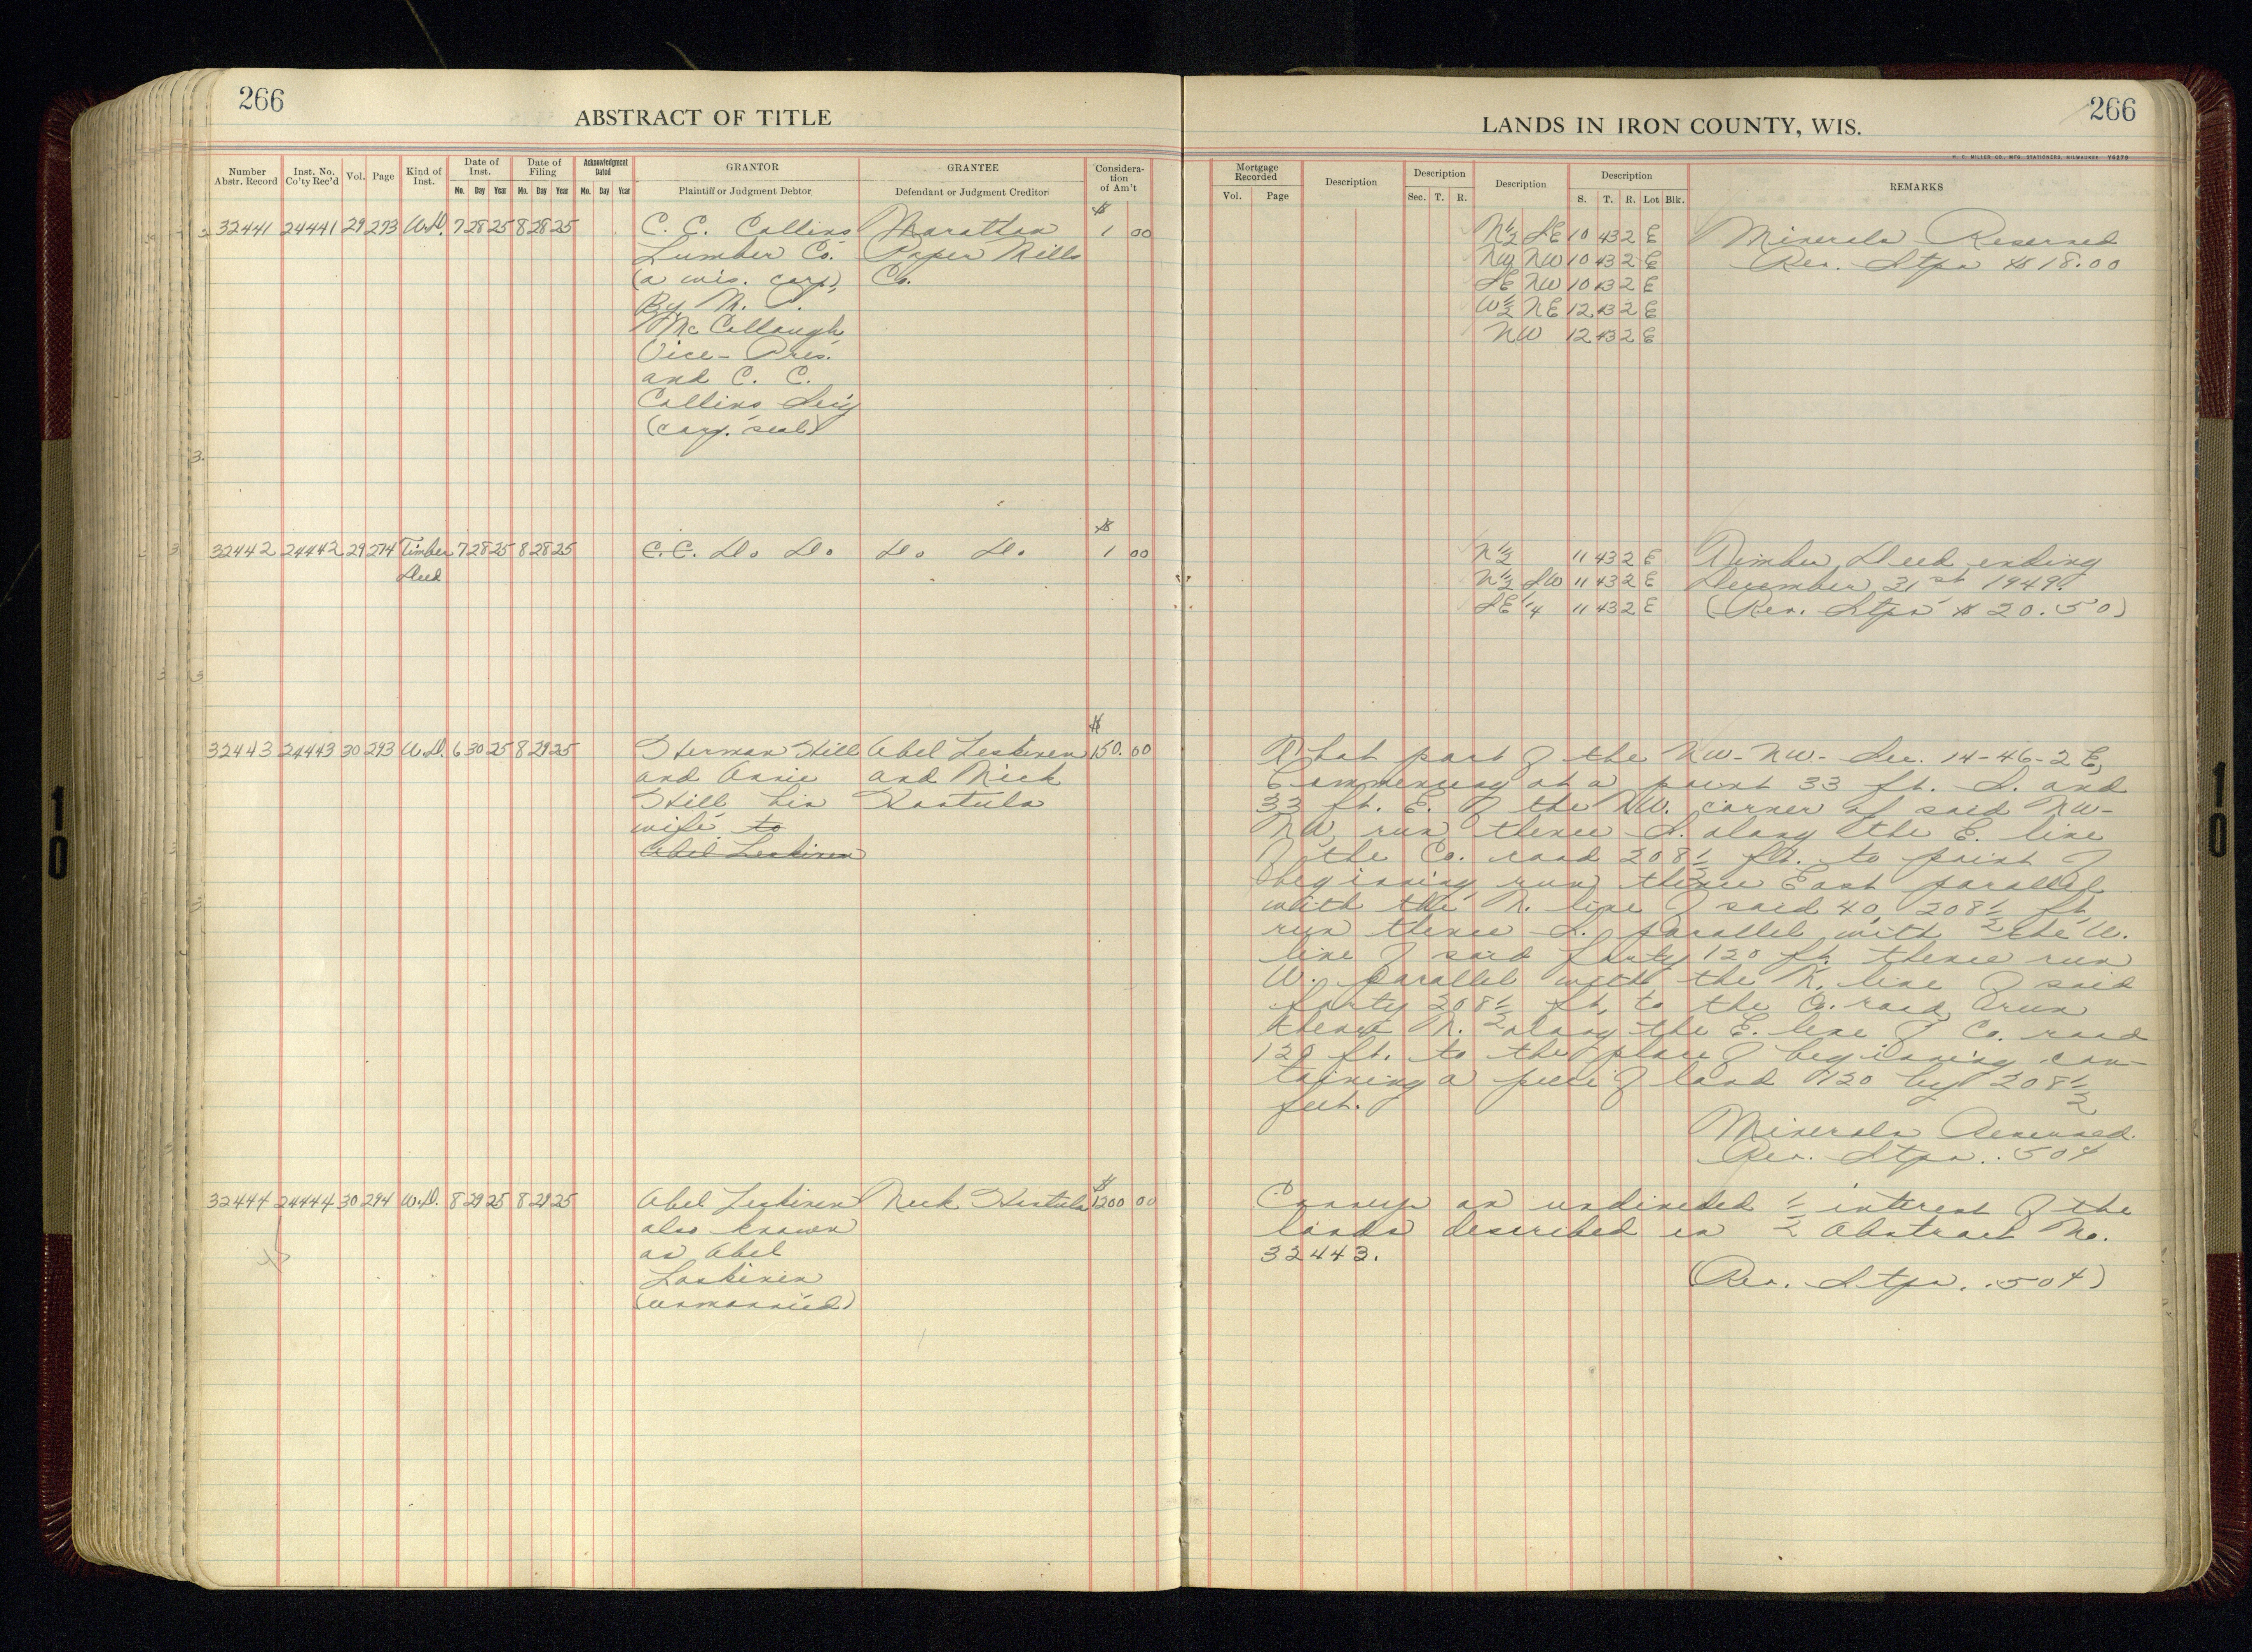 266
ABSTRACT OF TITLE
Number Abstr. Record
Inst. No. Co'ty Rec'd
Vol.
Page
Kind of Inst.
Date of Inst.
Mo. Day Year
Date of Filing
Mo. Day Year
Acknowledgment Dated
Mo. Day Year
GRANTOR
Plaintiff or Judgment Debtor
GRANTEE
Defendant or Judgment Creditor
Considera-tion of Am't
32441 24441 29 273 W.D. 7 28 25 8 28 25 C. C. Collins Marathon $ 1 00
Lumber Co. Paper Mills
(a wis. corp.) Co.
By M. P.
McCullough
Vice-Pres.
and C. C.
Collins Sec'y
(corp. seal)
32442 24442 29 274 Timber 7 28 25 8 28 25 C.C. Do Do Do Do $ 1 00
Deed
32443 24443 30 293 W.D. 6 30 25 8 29 25 Herman Hill Abel Leskinen $ 150.00
and Annie and Nick
Hill his Hautula
wife to
Abel Leskinen
32444 24444 30 294 W.D. 8 29 25 8 29 25 Abel Leskinen Nick Hautula $ 1200 00
also known
as Abel
Laskinen
(unmarried)
266
LANDS IN IRON COUNTY, WIS.
H. C. MILLER CO. MFG. STATIONERS, MILWAUKEE Y0279
Mortgage Recorded
Vol. Page
Description
Description
Sec. T. R.
Description
Description
S. T. R. Lot Blk.
REMARKS
N½ SE 10 43 2 E Minerals Reserved
NW NW 10 43 2 E Rev. Stps $18.00
SE NW 10 43 2 E
W½ NE 12 43 2 E
NW 12 43 2 E
N½ 11 43 2 E Timber Deed ending
N½ SW 11 43 2 E December 31st 1949.
SE¼ 11 43 2 E (Rev. Stps $20.50)
That part of the NW-NW- Sec. 14-46-2 E,
Commencing at a point 33 ft. S. and
33 ft. E. of the NW. corner of said NW-
NW, run thence S. along the E. line
of the Co. road 208½ ft. to point of
beginning, run thence East parallel
with the N. line of said 40, 208½ ft,
run thence S. parallel with the W.
line of said forty 120 ft. thence run
W. parallel with the N. line of said
forty 208½ ft, to the Co. road, run
thence N. along the E. line of Co. road
120 ft. to the place of beginning con-
taining a piece of land 120 by 208½
feet.
Minerals Reserved.
Rev. Stps. .50¢
Conveys an undivided ½ interest of the
lands described in Abstract No.
32443.
(Rev. Stps. .50¢)